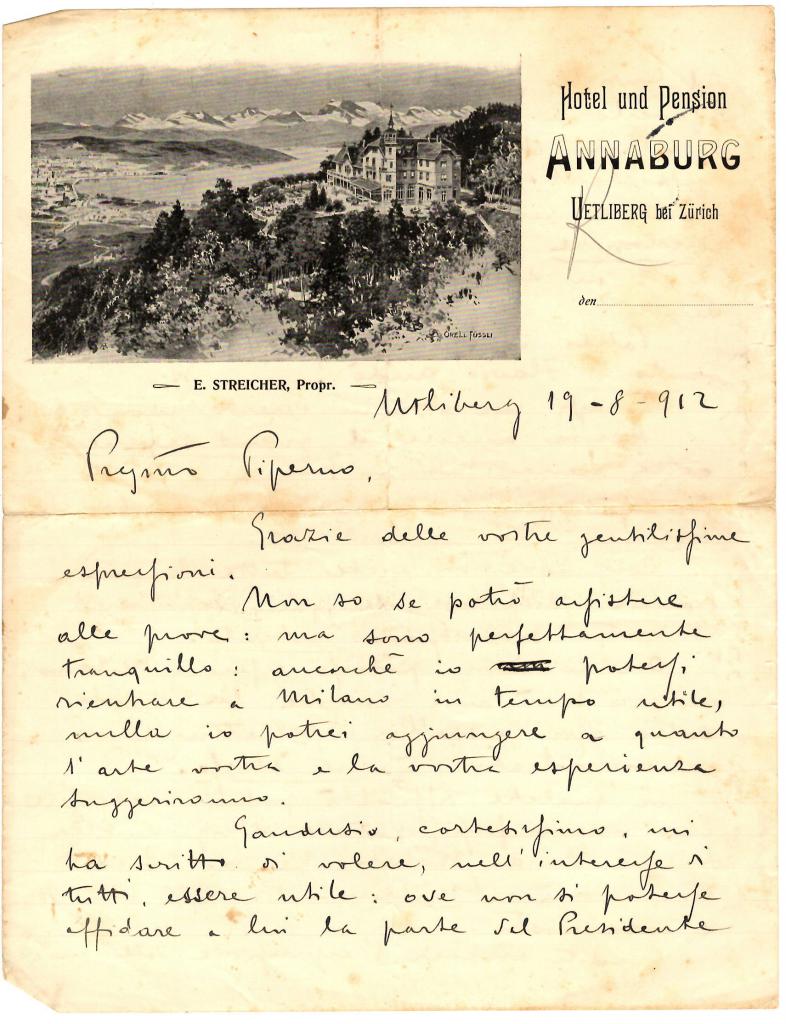 Hotel und Pension
ANNABURG
UETLIBERG bei Zürich
den
ORELL FÜSSLI
E. STREICHER, Propr.
Utliberg 19-8-912
Pregmo Piperno,
Grazie delle vostre gentilissime
espressioni.
Non so se potrò assistere
alle prove: ma sono perfettamente
tranquillo: ancorchè io potessi
rientrare a Milano in tempo utile,
nulla io potrei aggiungere a quanto
l'arte vostra e la vostra esperienza
suggeriranno.
Gandusio, cortesissimo, mi
ha scritto di volere, nell'interesse di
tutti, essere utile: ove non si potesse
affidare a lui la parte del Presidente